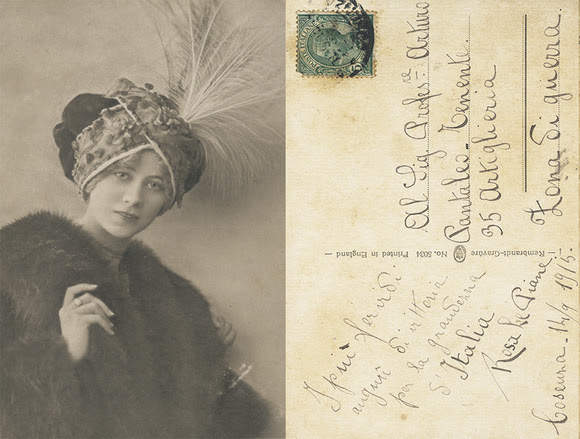 Al Sig. Profess.re Arturo
Pantaleo - Tenente
35 Artiglieria
Zona di guerra.
Rembrandt-Gravure
No. 5034 Printed in England
I più fervidi
auguri di vittoria
per la grandezza
d'Italia
Rosa La Piane
Cosenza - 14/9 1915.